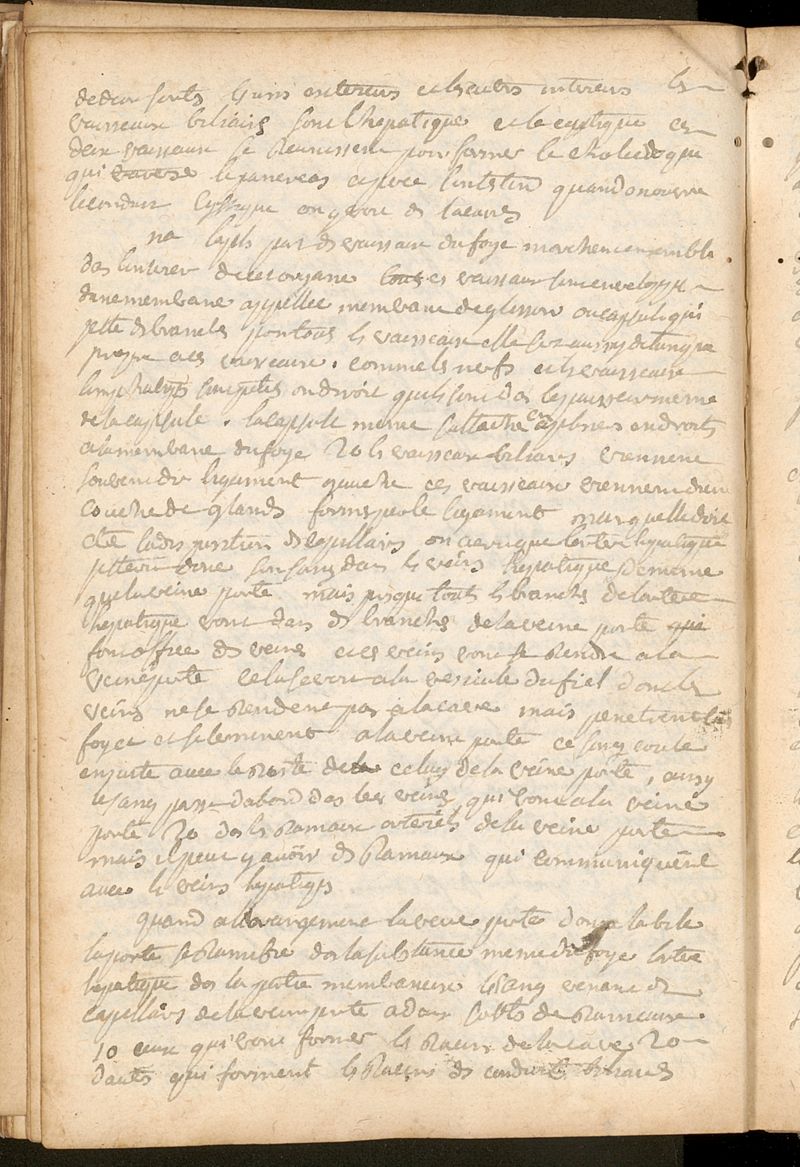 de deux sorts les uns exterieurs et les autres interieurs les
vaisseaux biliairs sont l'hepatique et le cystique ces
deux vaisseaux se reunissent pour former le choledoque
qui traverse le pancreas et perce l'intestin quand on ouvre
le conduit cystique on y trouve des lacunes
na la plus part des vaisseaux du foye marchent ensemble
dans l'interieur de cet organe tous ces vaisseaux sont enveloppes
d'une membrane appellée membrane de glisson ou capsule qui
jette des branches pour tous les vaisseaux elle sert aussy de tunique
propre a ces vaisseaux. comme les nerfs et les vaisseaux
limphatiqs sont petits on diroit qu'ils sont dans l'epaisseur meme
de la capsule. la capsule meme s'attache en plusieurs endroits
a la membrane du foye 2o les vaisseaux biliairs viennent
souvent du ligament gauche ces vaisseaux viennent d'une
couche de glands formes par le ligament
la disposition des capillairs on a cru que l'artere hepatique
jettoit donc son sang dans les veins hepatique de meme
que la veine porte mais presque touts les branches de l'artere
hepatique vont dans des branches de la veine porte qui
font office de veines et ces veins vont se rendre a la
veine porte cela se voit a la vesicule du fiel donc les
veins ne se rendent pas a la cave mais penetrent les
foye et se terminent a la veine porte ce sang coule
ensuite avec le reste de la celuy de la veine porte, ainsy
le sang passe d'abord dans les veins qui vont a la veine
porte 2o dans les rameaux arteriels de la veine porte
mais il peut y avoir des rameaux qui communiquent
avec les veins hepatiqs
quand a l'arrangement la veine porte donne la bile
la porte se ramifie dans la substance meme du foye l'artere
hepatique dans la partie membraneuse le sang venant des
capillairs de la veine porte a deux sorts de rameaux.
1o ceux qui vont former les racins de la cave 2o
d'autrs qui forment les racins des conduits biliaires